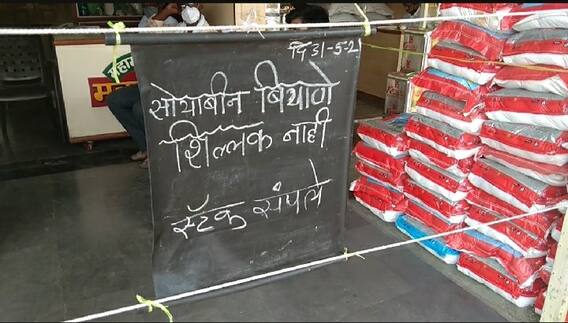 दि 31-5-2
सोयाबीन बियाणे
शिल्लक नाही
स्टॅक संपले